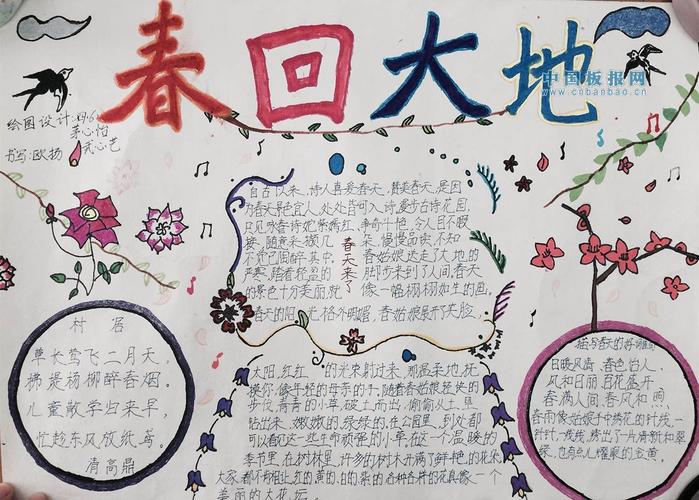 春回大地
中国板报网
www.cnbanbao.cn
绘图设计:
茉心怡
书写:欧扬
武心艺
自古以来,诗人喜爱春天,赞美春天,是因
为春天景色宜人,处处皆可入诗,漫步古诗花园,
只见咏春诗姹紫嫣红,争奇斗艳,令人目不暇
接,随意采撷几朵,慢慢而实,不知
不觉已陶醉其中。春姑娘送走了大地的
严寒,踏着轻盈的脚步来到了人间,春天
的景色十分美丽,就像一幅栩栩如生的画。
春天的阳光格外明媚,春姑娘展开了笑脸,
春天来了
太阳,红红的光束射过来,那温柔地抚
摸你,像年轻的母亲的手。随着春姑娘轻快的
步伐,青青的小草破土而出,偷偷从土里
钻出来,嫩嫩的,绿绿的。在公园里,到处都
可以看见这一些生命顽强的小草在这个温暖的
季节里,在树林里,许多的树木开满了鲜艳的花朵,
大家都不肯相让,红的黄的,白的,来的各种各样的花真像一个
美丽的大花坛。
村居
草长莺飞二月天,
拂堤杨柳醉春烟。
儿童散学归来早,
忙趁东风放纸鸢。
清高鼎
描写春天的好词
日暖风清、春色怡人、
风和日丽 百花盛开
春满人间 春风和煦
春雨像姑娘手中绣花的针线,一
针针,一线线,绣出了一片清新和翠
绿,也有点儿耀眼的金黄。